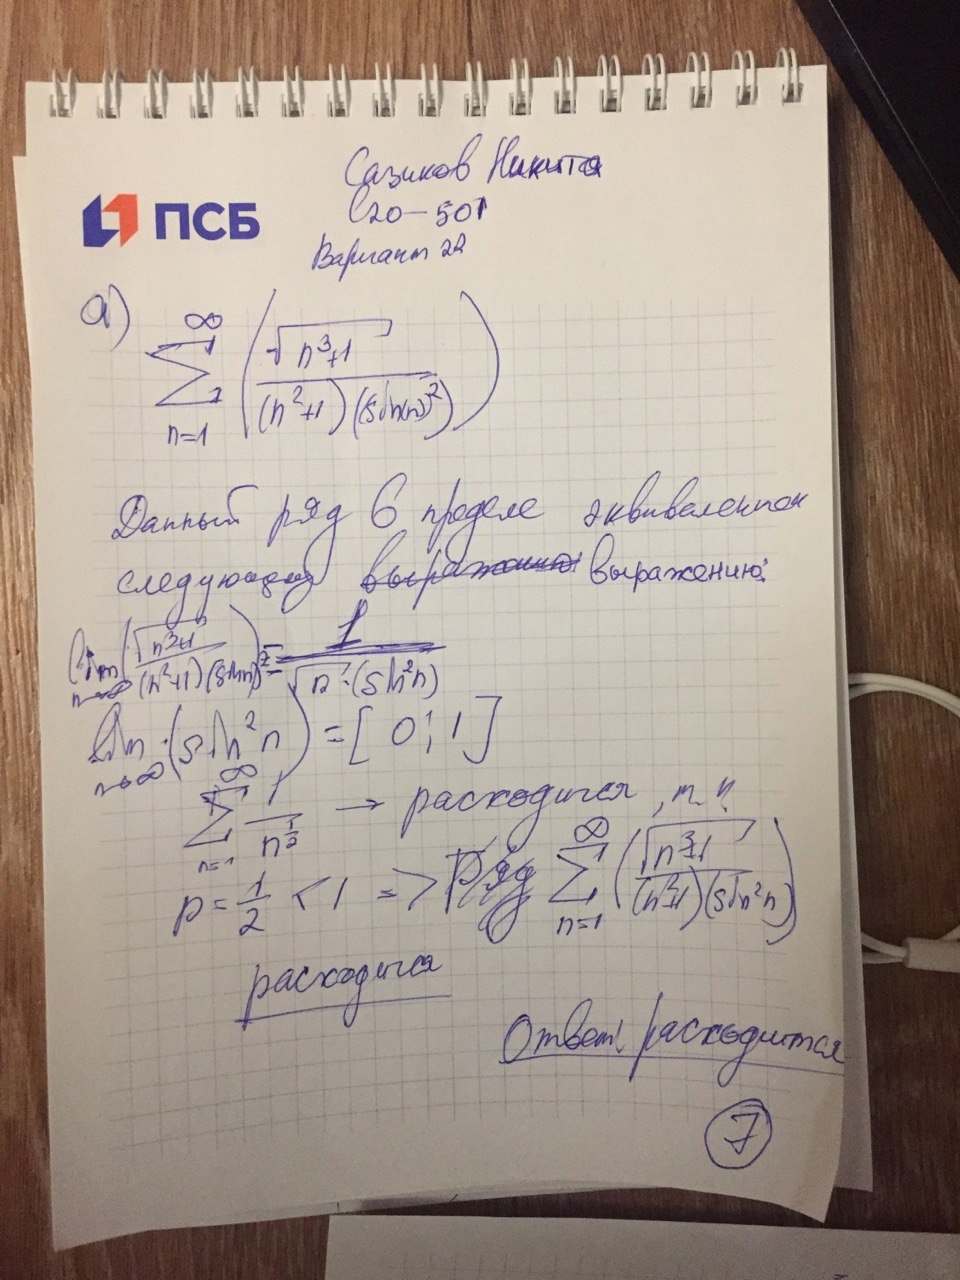 Сазиков Никита
С20-501
ПСБ
Вариант 22
а)
∞ ∑ n=1 ( √(n³+1) / (n²+1)(sin(n)²) )
Данный ряд в пределе эквивалентен
следующему выражению:
lim n→∞ ( √(n³+1) / (n²+1)(sin²n) ) = 1 / √n·(sin²n)
lim n→∞ (sin²n) = [0; 1]
∞ ∑ n=1 1 / n^(1/2) → расходится, т. к.
p = 1/2 < 1 => Ряд ∞ ∑ n=1 ( √(n³+1) / (n²+1)(sin²n) )
расходится
Ответ: расходится
7